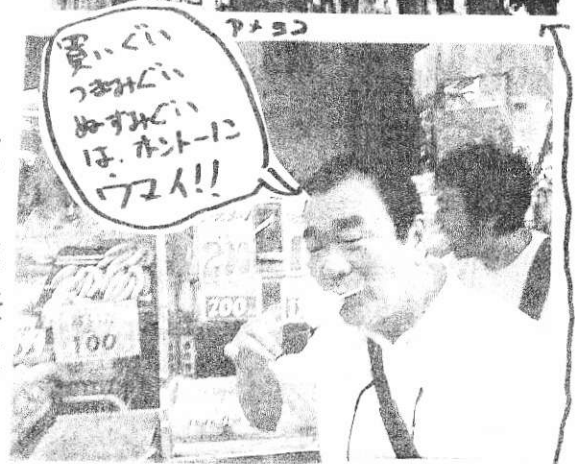 アメヨコ
買いぐい
つまみぐい
ぬすみぐい
は、ホントーに
ウマイ!!
200
100